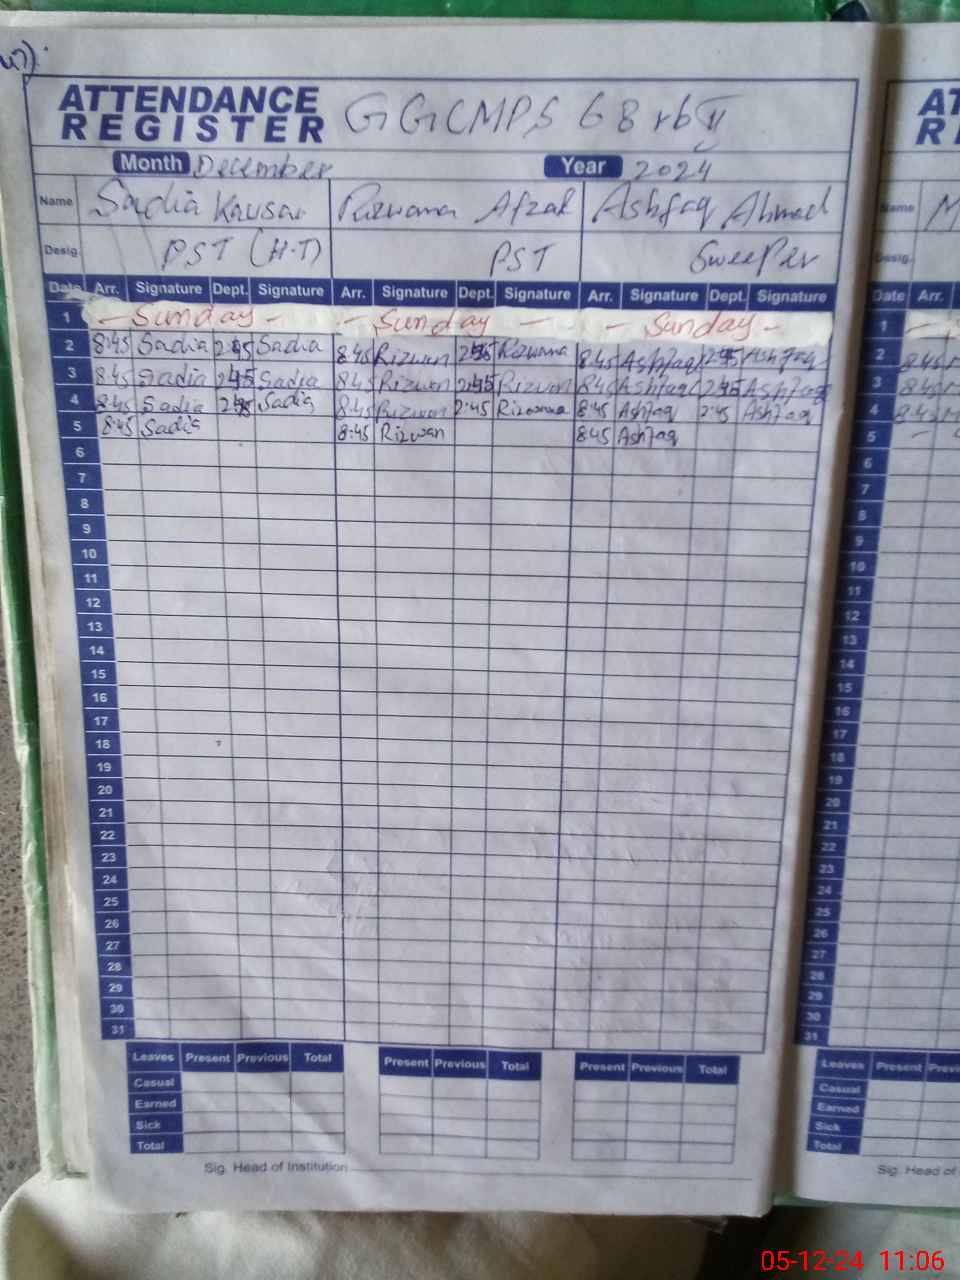 ATTENDANCE REGISTER GGCMPS 68 rb II
Month December Year 2024
Name Sadia Kausar Rizwana Afzal Ashfaq Ahmad
Desig. PST (H.T) PST Sweeper
Date Arr. Signature Dept. Signature Arr. Signature Dept. Signature Arr. Signature Dept. Signature
1 - Sunday - - Sunday - - Sunday -
2 8:45 Sadia 2:45 Sadia 8:45 Rizwan 2:45 Rizwana 8:45 Ashfaq 2:45 Ashfaq
3 8:45 Sadia 2:45 Sadia 8:45 Rizwan 2:45 Rizwan 8:45 Ashfaq 2:45 Ashfaq
4 8:45 Sadia 2:45 Sadia 8:45 Rizwan 2:45 Rizwana 8:45 Ashfaq 2:45 Ashfaq
5 8:45 Sadia 8:45 Rizwan 8:45 Ashfaq
6
7
8
9
10
11
12
13
14
15
16
17
18
19
20
21
22
23
24
25
26
27
28
29
30
31
Leaves Present Previous Total Present Previous Total Present Previous Total
Casual
Earned
Sick
Total
Sig. Head of Institution
AT
RI
Name M
Desig.
Date Arr.
1
2 8:45
3 8:45
4 8:45
5
6
7
8
9
10
11
12
13
14
15
16
17
18
19
20
21
22
23
24
25
26
27
28
29
30
31
Leaves Present Previ
Casual
Earned
Sick
Total
Sig. Head of
05-12-24 11:06